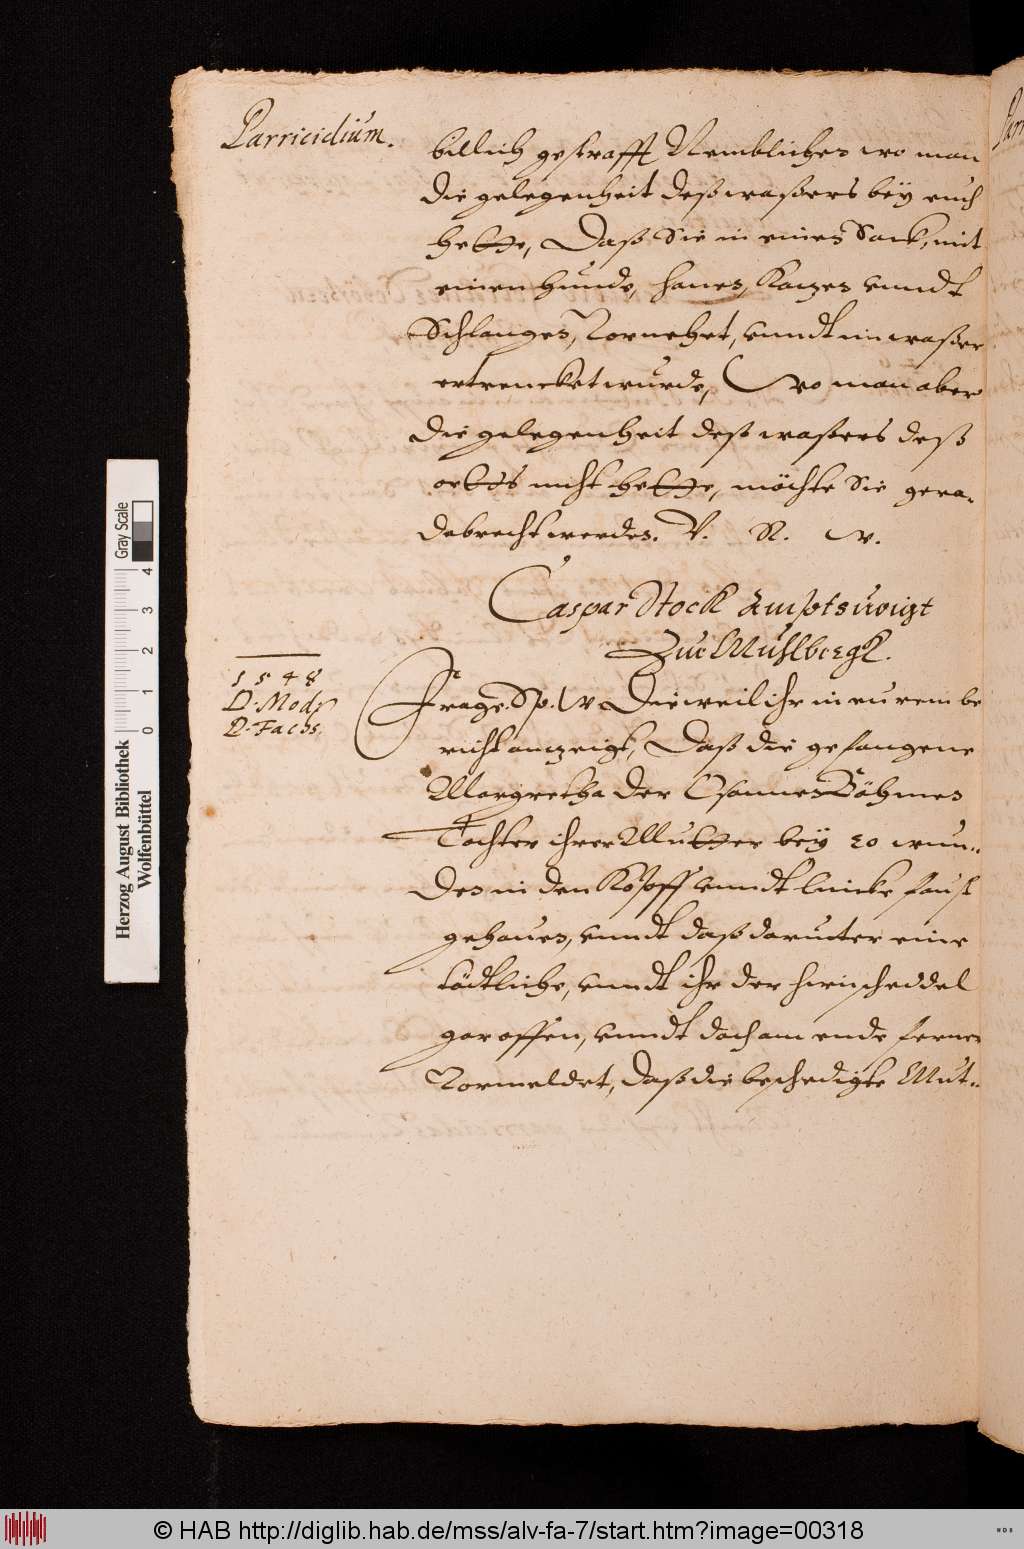 Parricidium.
billich gestrafft Nemblichen wo man
die gelegenheit deß waßers bey euch
hette, Daß Sie in einen Sack, mit
einen hunde, hanen, Katzen vnndt
Schlangen, Vornehet, vnndt im waßer
ertrencket wurde, Wo man aber
die gelegenheit deß waßers deß
orttes nicht hette, möchte Sie gera-
debrecht werden. V. R. W.
Caspar Stock Amptsvoigt
Zue Muhlbergk.
1548
D. Mod:
D. Fachs.
Frage. Sp. W Dieweil ihr in eurem be
richt anzeigt, Daß die gefangene
Margretha der Hannes Böhmes
Tochter ihrer Mutter bey 20 wun-
den in den Kopff vnndt lincke faust
gehauen, vnndt daß darunter eine
tödtliche, vnndt ihr der hirnscheddel
gar offen, vnndt doch am ende ferner
Vormeldet, daß die beschedigte Mut-
Herzog August Bibliothek
Wolfenbüttel
0 1 2 3 4
Gray Scale
© HAB http://diglib.hab.de/mss/alv-fa-7/start.htm?image=00318
HAB